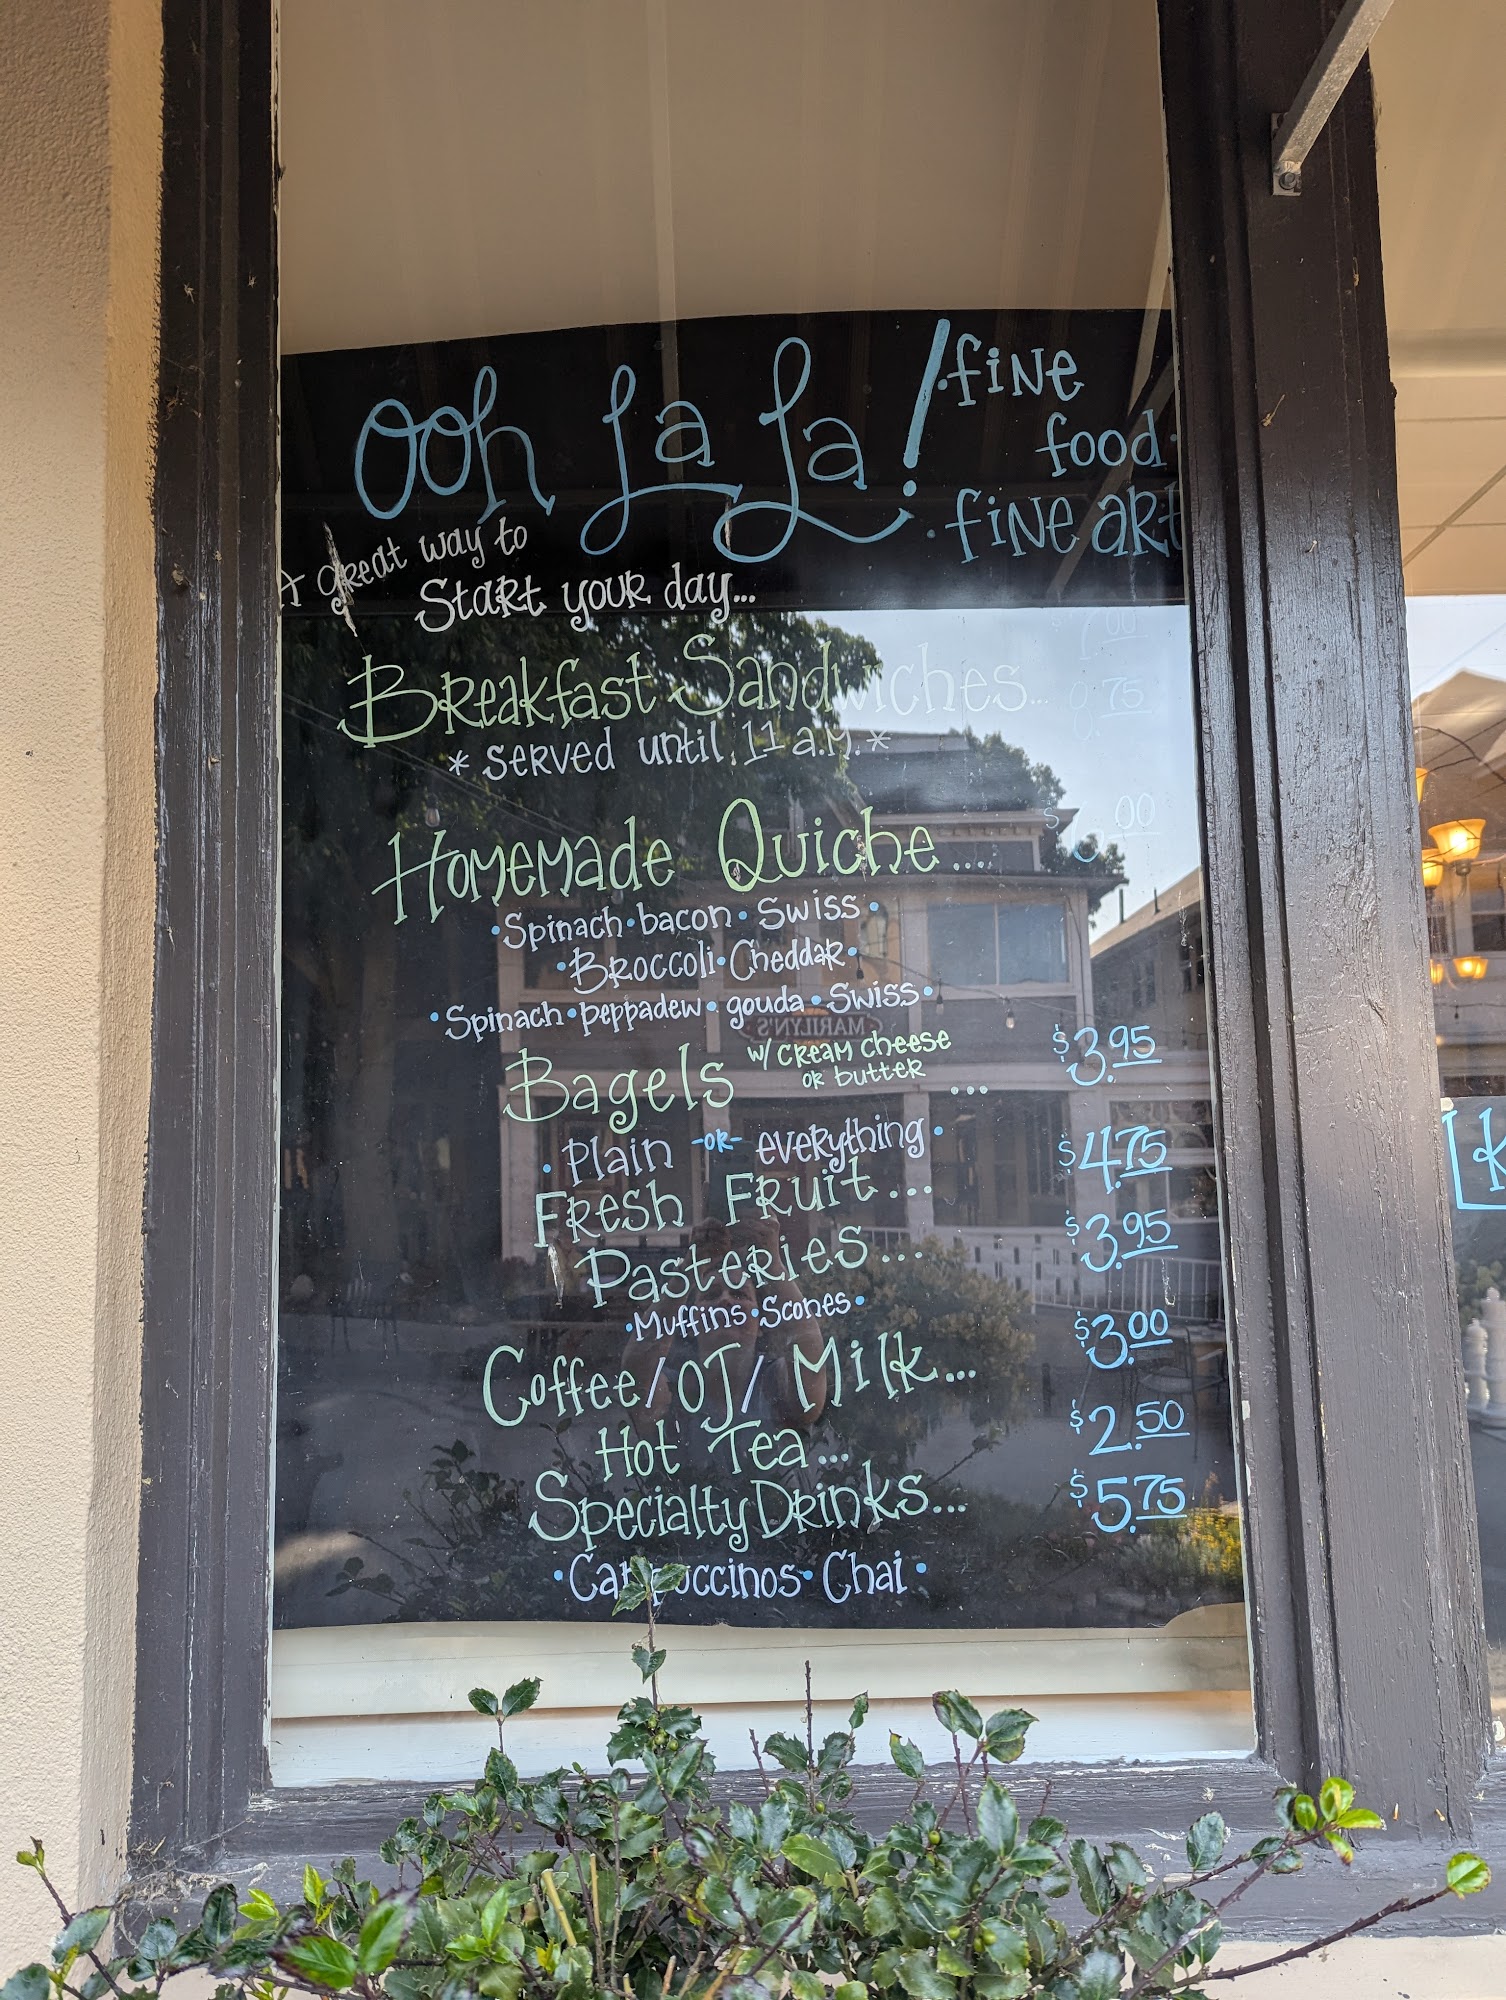 Ooh La La!
.fine
food.
.fine art
A great way to
Start your day...
Breakfast Sandwiches...
* served until 11 a.m. *
Homemade Quiche....
•Spinach•bacon•Swiss•
•Broccoli•Cheddar•
•Spinach•peppadew•gouda•Swiss•
Bagels w/ cream cheese
or butter ... $3.95
•Plain -or- everything•
Fresh Fruit... $4.75
Pasteries... $3.95
•Muffins•Scones•
Coffee/OJ/Milk... $3.00
Hot Tea... $2.50
Specialty Drinks... $5.75
•Cappuccinos•Chai•
MARILYN'S